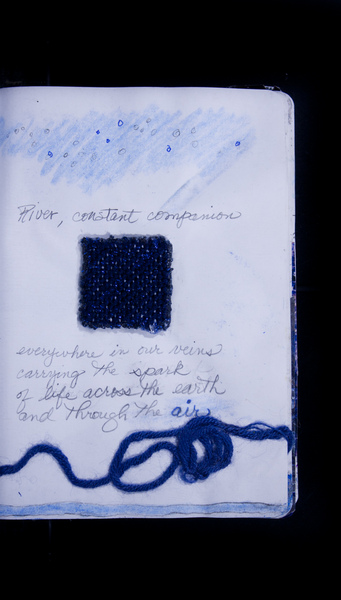 River, constant companion
everywhere in our veins
carrying the spark
of life across the earth
and through the air